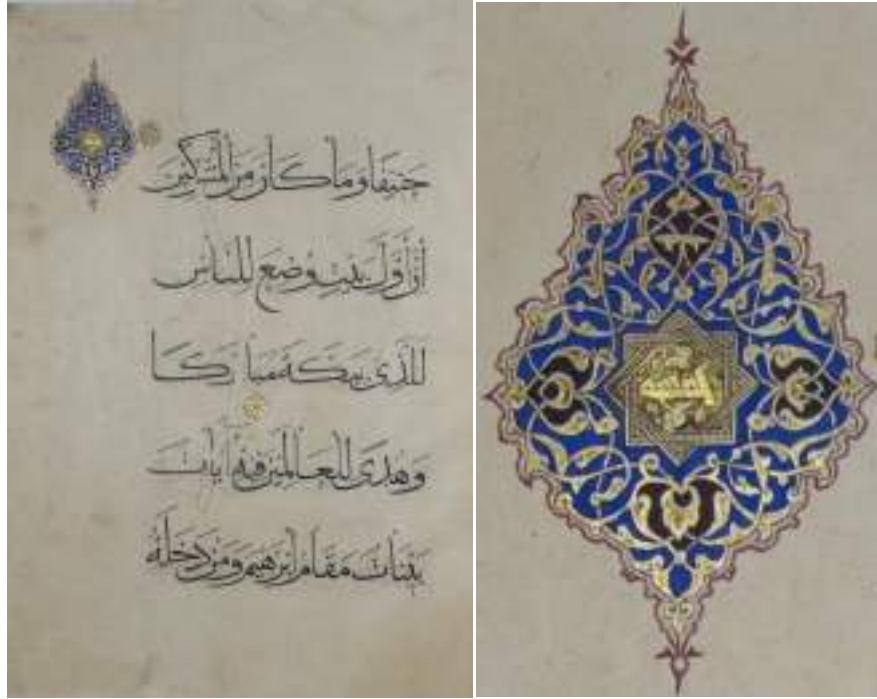 حنيفا وما كان من المشركين
إن أول بيت وضع للناس
للذي ببكة مباركا
وهدى للعالمين فيه آيات
بينات مقام ابرهيم ومن دخله